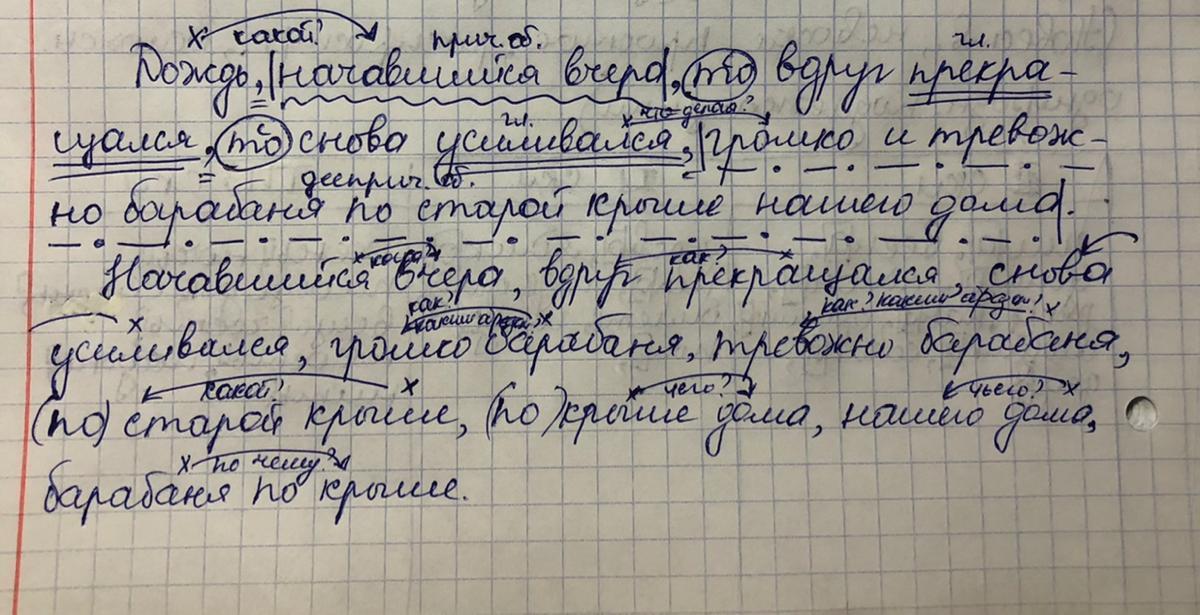 какой? прич. об. гл.
Дождь, |начавшийся вчера|, то вдруг прекра-
что делая?
гл.
щался, то снова усиливался, |громко и тревож-
дееприч. об.
но барабаня по старой крыше нашего дома|.
когда? как?
Начавшийся вчера, вдруг прекращался, снова
как? каким образом? как? каким образом?
усиливался, громко барабаня, тревожно барабаня,
какой? чего? чьего?
(по) старой крыше, (по) крыше дома, нашего дома,
по чему?
барабаня по крыше.